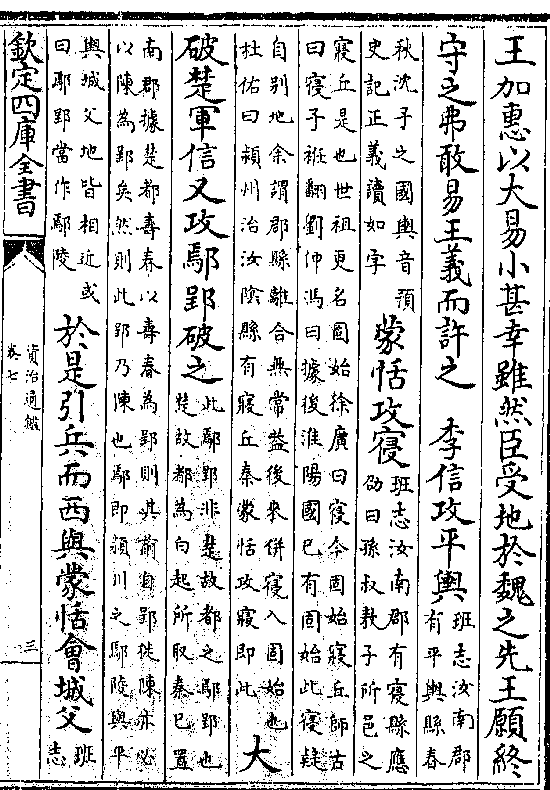 王加惠以大易小甚幸雖然臣受地於魏之先王願終
守之弗敢易王義而許之　李信攻平輿班志汝南郡
有平輿縣春
秋沈子之國輿音預
史記正義讀如字
蒙恬攻寑班志汝南郡有寑縣應
劭曰孫叔敖子所邑之
寑丘是也世祖更名固始徐廣曰寑今固始寑丘師古
曰寑子袵翻劉仲馮曰據後淮陽國已有固始此寑疑
自别地余謂郡縣離合無常蓋後來併寑入固始也
杜佑曰潁州治汝隂縣有寑丘秦蒙恬攻寑即此
大
破楚軍信又攻鄢郢破之此鄢郢非楚故都之鄢郢也
楚故都為白起所取秦已置
南郡據楚都壽春以壽春為郢則其前自郢徙陳亦必
以陳為郢矣然則此郢乃陳也鄢即潁川之鄢陵與平
輿城父地皆相近或
曰鄢郢當作鄢陵
於是引兵而西與蒙恬會城父班
志
欽定四庫全書
資治通鑑
卷七
三